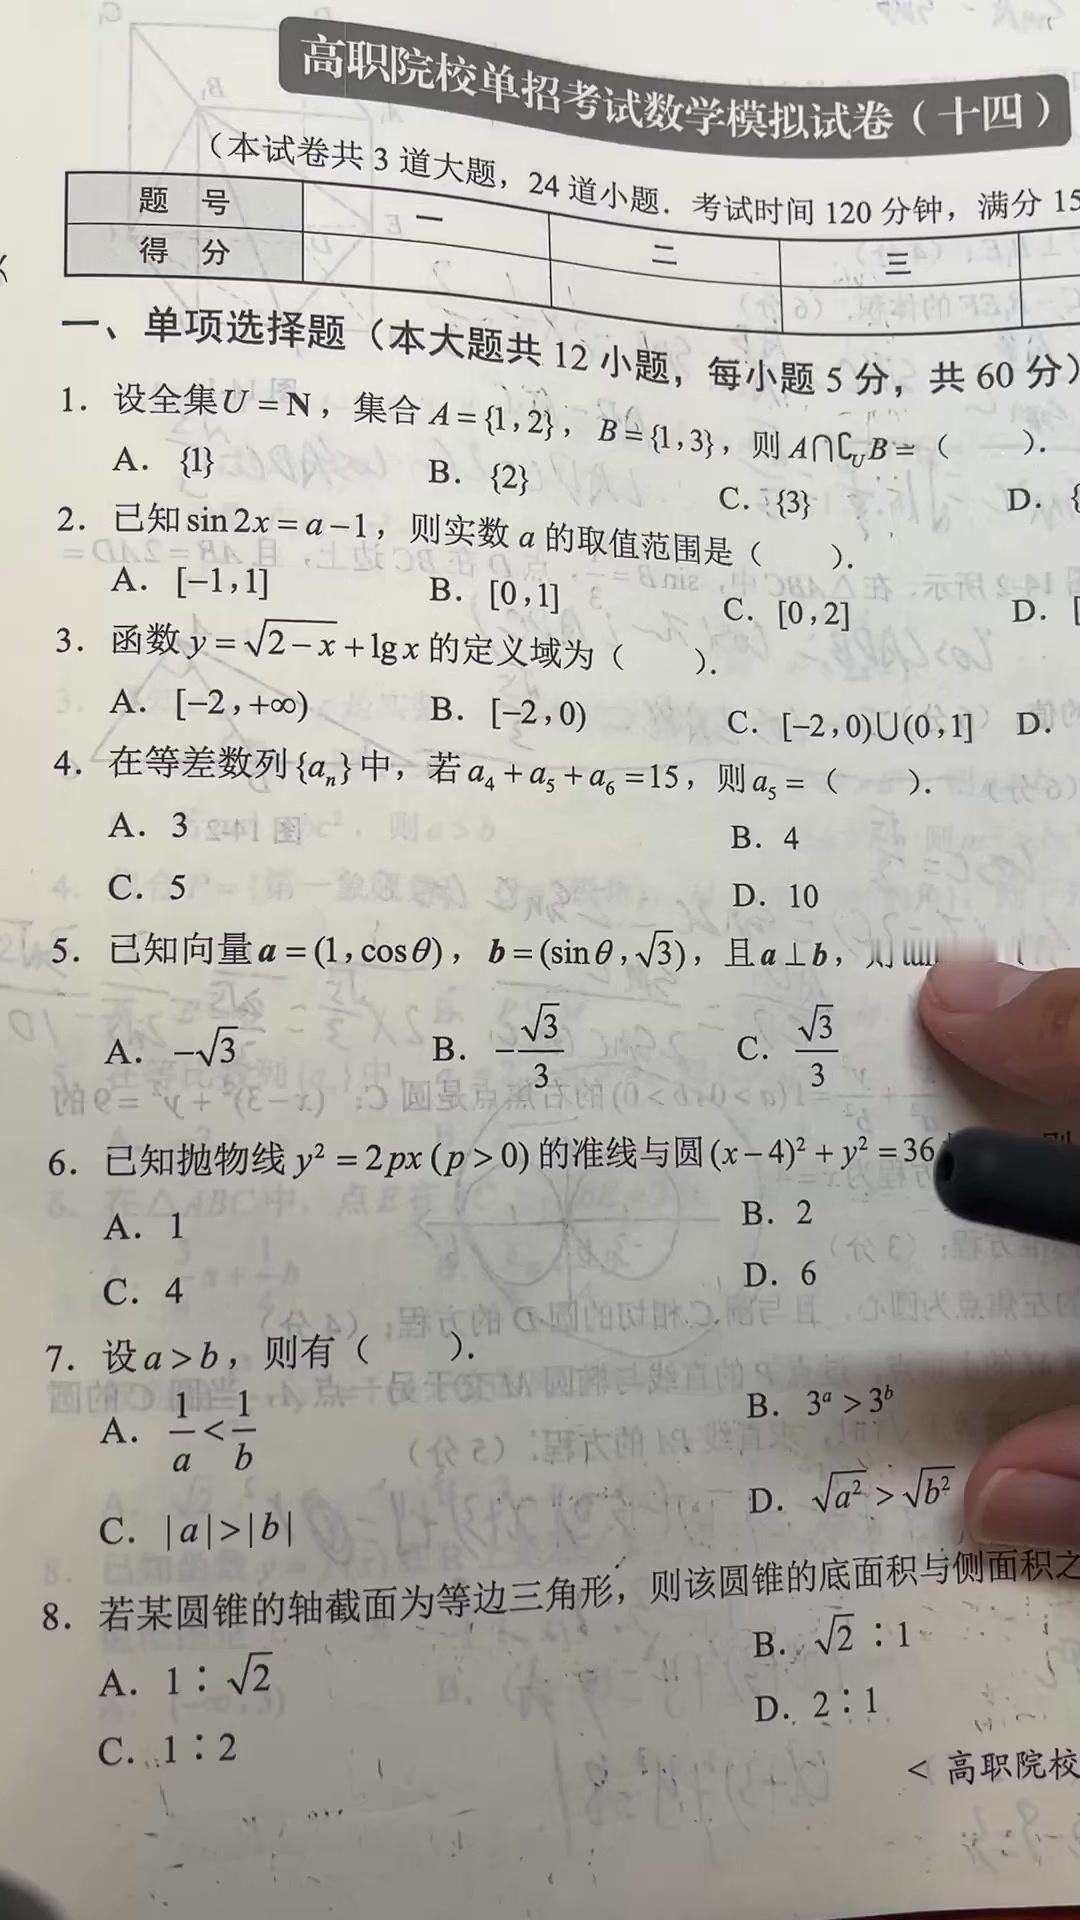 高职院校单招考试数学模拟试卷（十四）
（本试卷共 3 道大题，24 道小题．考试时间 120 分钟，满分 15
题 号 一 二 三
得 分
一、单项选择题（本大题共 12 小题，每小题 5 分，共 60 分）
1．设全集U = N，集合 A = {1，2}，B = {1，3}，则 A∩∁UB =（　　）．
A．{1} B．{2} C．{3} D．{
2．已知 sin2x = a − 1，则实数 a 的取值范围是（　　）．
A．[−1，1] B．[0，1] C．[0，2] D．[
3．函数 y = √(2−x) + lg x 的定义域为（　　）．
A．[−2，+∞) B．[−2，0) C．[−2，0)∪(0，1] D．
4．在等差数列{aₙ}中，若 a₄ + a₅ + a₆ = 15，则 a₅ =（　　）．
A．3 B．4
C．5 D．10
5．已知向量 a = (1，cosθ)，b = (sinθ，√3)，且 a⊥b，
A．−√3 B．−√3/3 C．√3/3
6．已知抛物线 y² = 2px (p > 0) 的准线与圆 (x−4)² + y² = 36
A．1 B．2
C．4 D．6
7．设 a > b，则有（　　）．
A．1/a < 1/b B．3ᵃ > 3ᵇ
C．|a| > |b| D．√a² > √b²
8．若某圆锥的轴截面为等边三角形，则该圆锥的底面积与侧面积之
A．1∶√2 B．√2∶1
C．1∶2 D．2∶1
< 高职院校